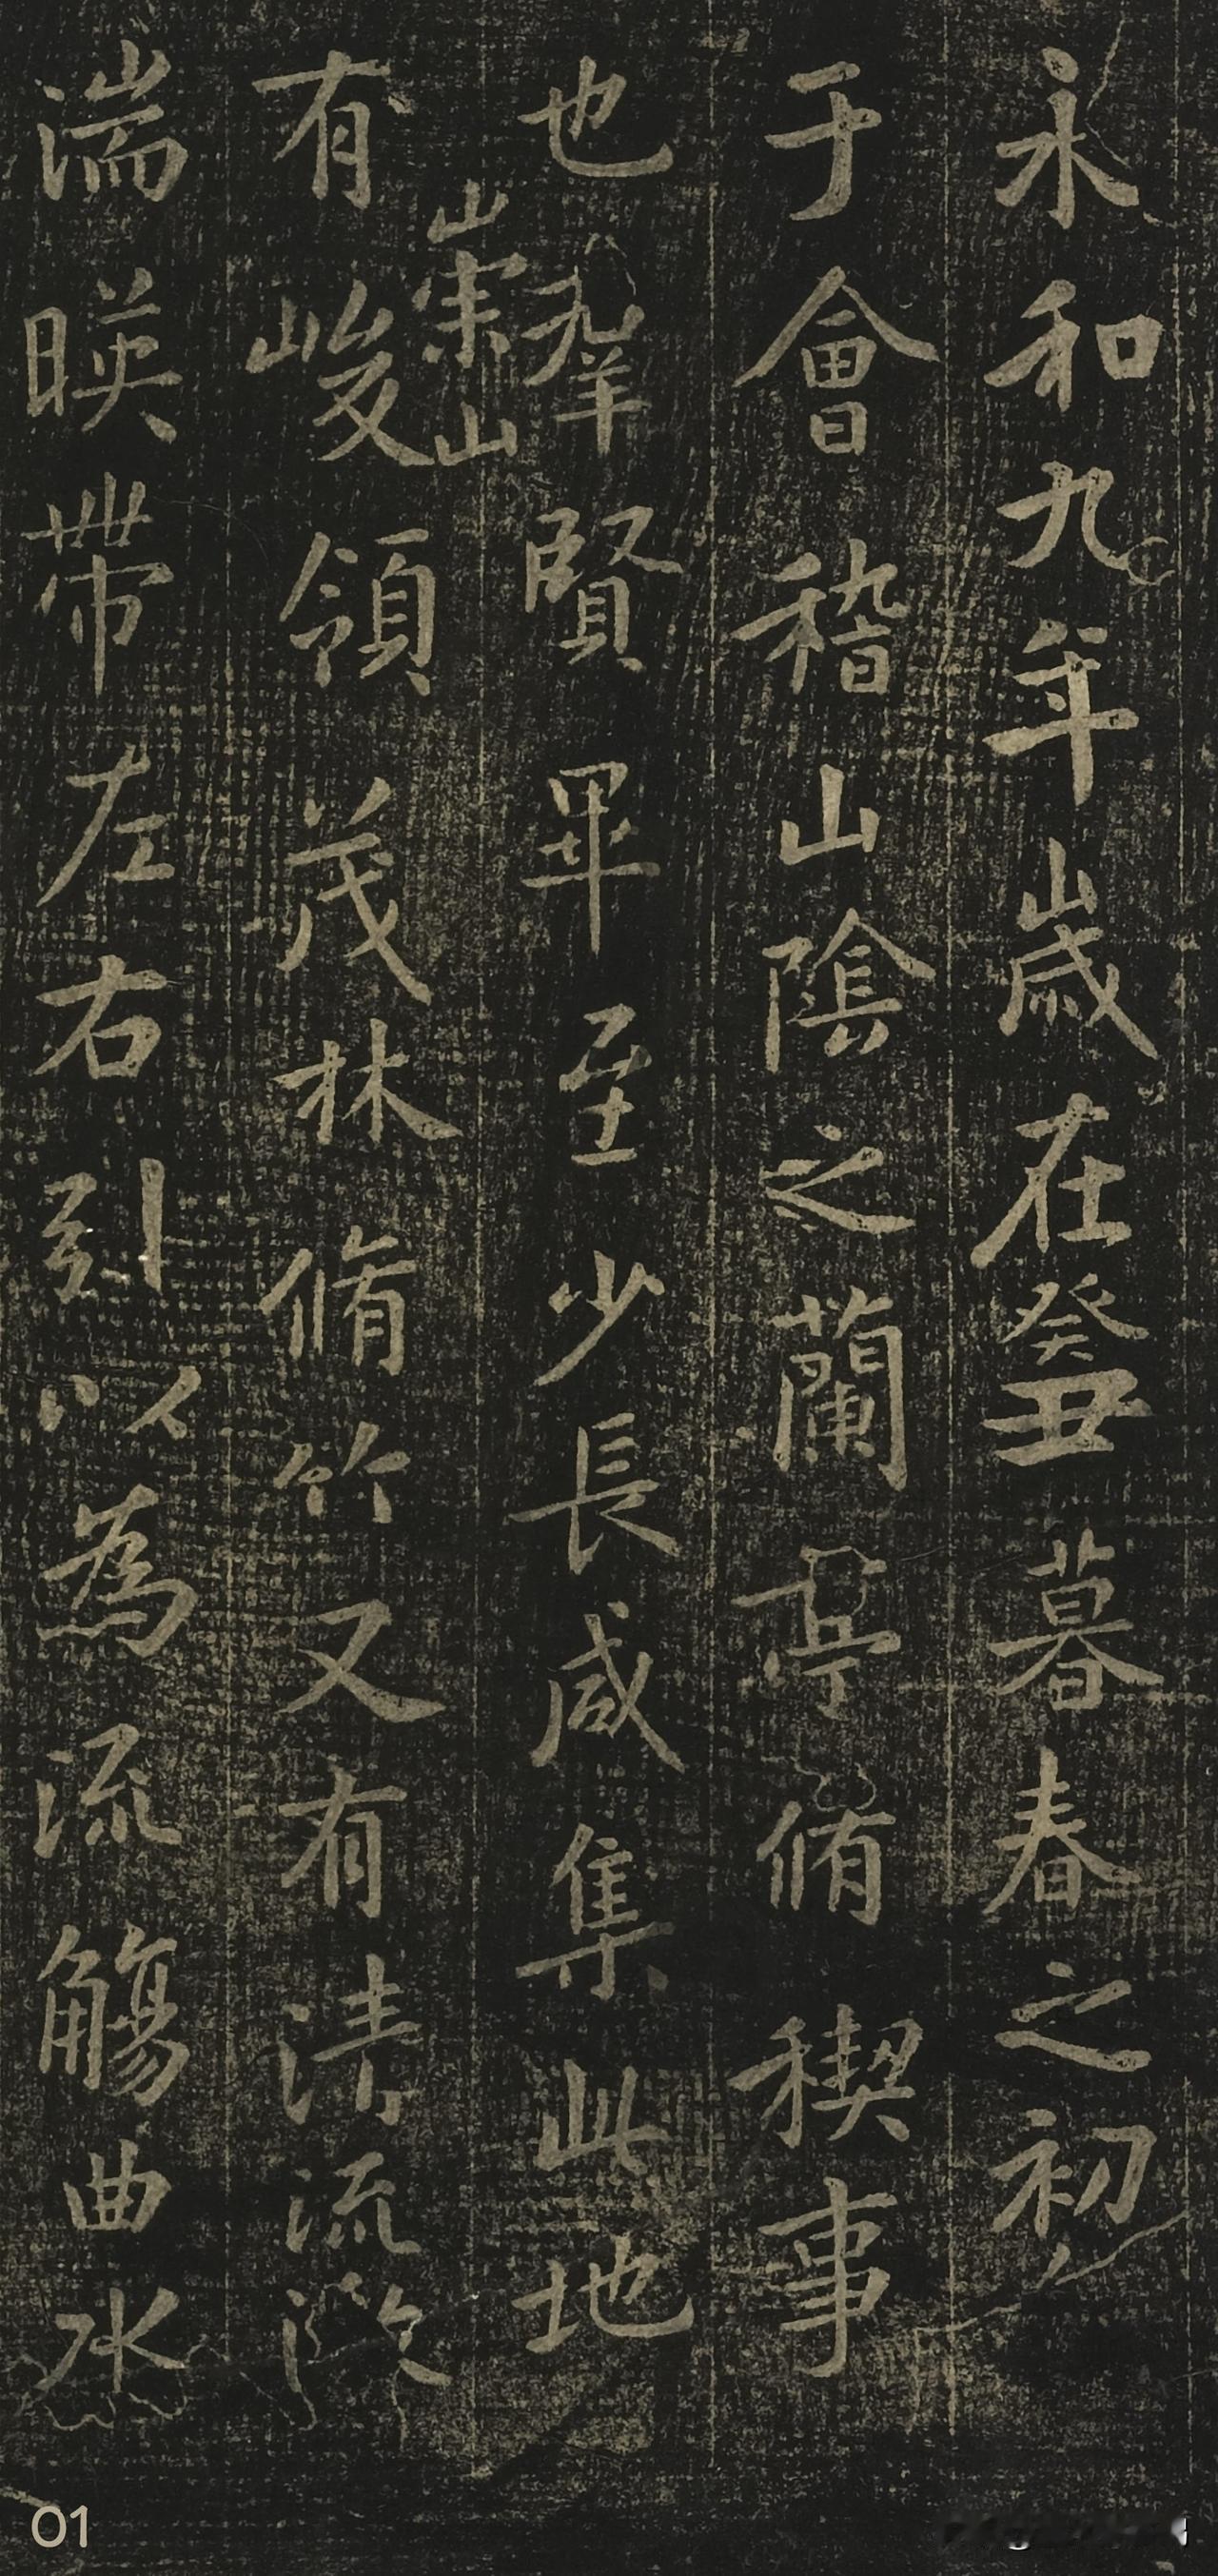 永和九年歲在癸丑暮春之初
于會稽山陰之蘭亭脩稧事
也羣賢畢至少長咸集此地
有崇山峻領茂林脩竹又有清流激
湍暎帶左右引以為流觴曲水
01